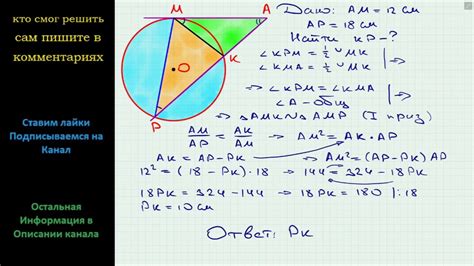 кто смог решить
сам пишите в
комментариях
Ставим лайки
Подписываемся на
Канал
Остальная
Информация в
Описании канала
M
A
K
O
P
Дано: AM = 12 см
AP = 18 см
Найти KP - ?
∠KPM = ½ ∪ MK
∠KMA = ½ ∪ MK
→ ∠KPM = ∠KMA
∠A - общ
→ △AMK ∾ △APM (I приз)
AM/AP = AK/AM → AM² = AK · AP
AK = AP - PK → AM² = (AP - PK) AP
12² = (18 - PK) · 18 → 144 = 324 - 18PK
18PK = 324 - 144 → 18PK = 180 | :18
PK = 10 см
Ответ: PK